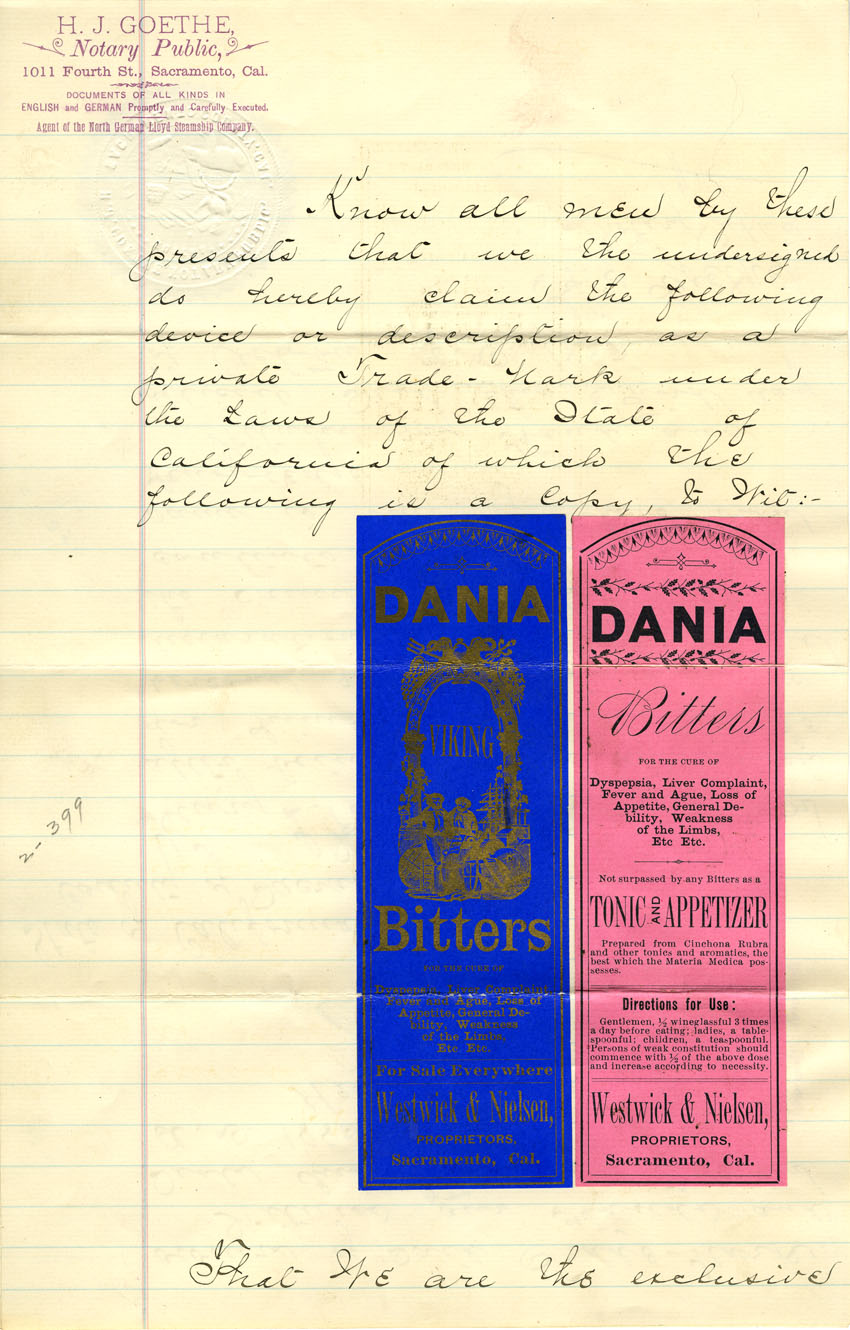 H. J. GOETHE,
Notary Public,
1011 Fourth St., Sacramento, Cal.
DOCUMENTS OF ALL KINDS IN
ENGLISH and GERMAN Promptly and Carefully Executed.
Agent of the North German Lloyd Steamship Company.
Know all men by these
presents that we the undersigned
do hereby claim the following
device or description, as a
private Trade-Mark under
the Laws of the State of
California of which the
following is a Copy, to Wit:-
2-399
DANIA
VIKING
Bitters
FOR THE CURE OF
Dyspepsia, Liver Complaint,
Fever and Ague, Loss of
Appetite, General De-
bility, Weakness
of the Limbs,
Etc. Etc.
For Sale Everywhere
Westwick & Nielsen,
PROPRIETORS,
Sacramento, Cal.
DANIA
Bitters
FOR THE CURE OF
Dyspepsia, Liver Complaint,
Fever and Ague, Loss of
Appetite, General De-
bility, Weakness
of the Limbs,
Etc Etc.
Not surpassed by any Bitters as a
TONIC AND APPETIZER
Prepared from Cinchona Rubra
and other tonics and aromatics, the
best which the Materia Medica pos-
sesses.
Directions for Use:
Gentlemen, ½ wineglassful 3 times
a day before eating; ladies, a table-
spoonful; children, a teaspoonful.
Persons of weak constitution should
commence with ½ of the above dose
and increase according to necessity.
Westwick & Nielsen,
PROPRIETORS,
Sacramento, Cal.
That We are the exclusive